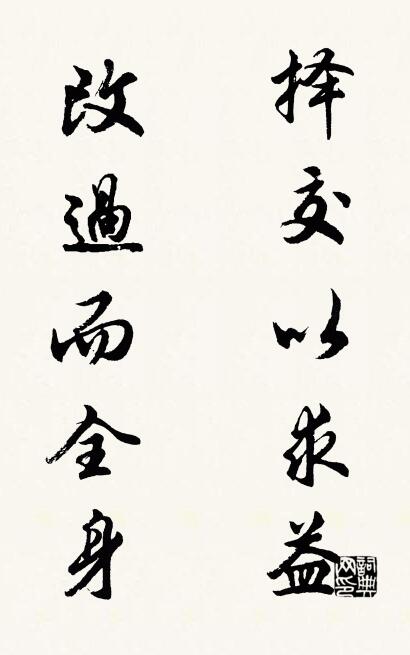 择交以求益
改過而全身